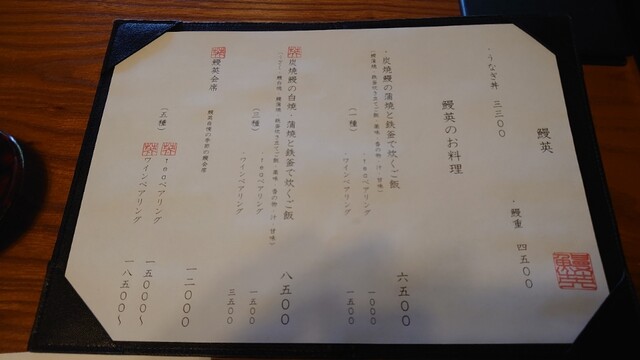 鰻英
・うなぎ丼 三三〇〇
・鰻重 四五〇〇
鰻英のお料理
・炭焼鰻の蒲焼と鉄釜で炊くご飯 六五〇〇
（一種） ・teaペアリング 一〇〇〇
・ワインペアリング 一五〇〇
炭焼鰻の白焼・蒲焼と鉄釜で炊くご飯 八五〇〇
（三種） ・teaペアリング 一五〇〇
・ワインペアリング 三五〇〇
鰻英会席 一二〇〇〇
（五種） teaペアリング 一五〇〇〇〜
ワインペアリング 一八五〇〇〜